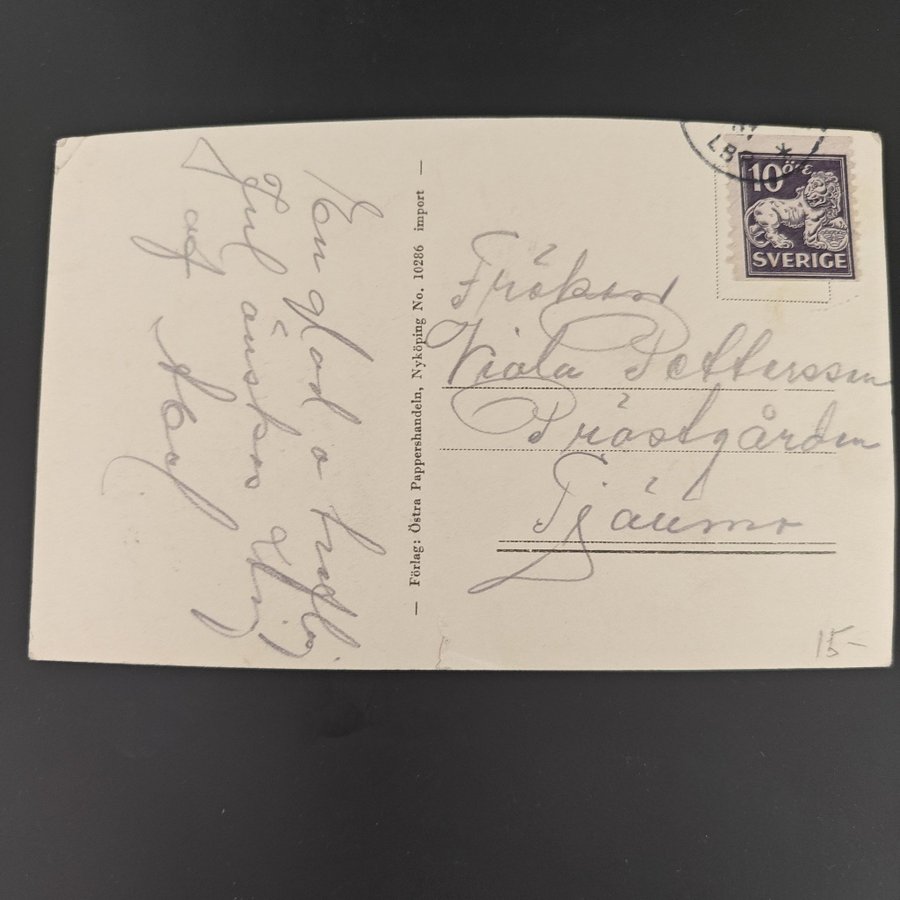 En god o fridfu
Jul önskas Dig
af
— Förlag: Östra Pappershandeln, Nyköping No. 10286 import —
LBC
*
10 ÖRE
SVERIGE
Fröken
Viola Pettersson
Prästgården
15-